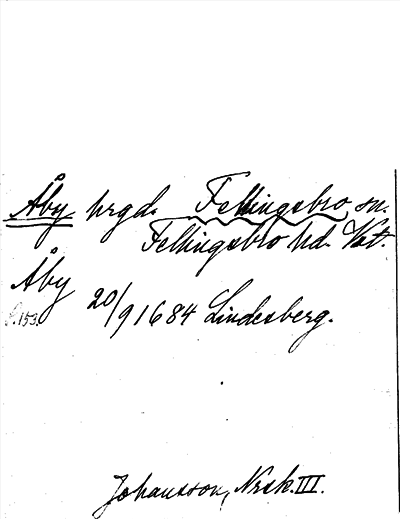 Åby hrgd. Fellingsbro sn.
Fellingsbro hd. Väst.
Åby
20/9 1684 Lindesberg.
s.153.
Johansson, Nrsk. III.